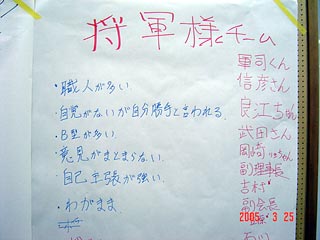 将軍様チーム
・職人が多い
・自覚がないが自分勝手と言われる。
・B型が多い
・意見がまとまらない
・自己主張が強い
・わがまま
軍司くん
信彦さん
良江ちゃん
武田さん
岡崎りっちゃん
副理事長
吉村
副会長
2005 3 25